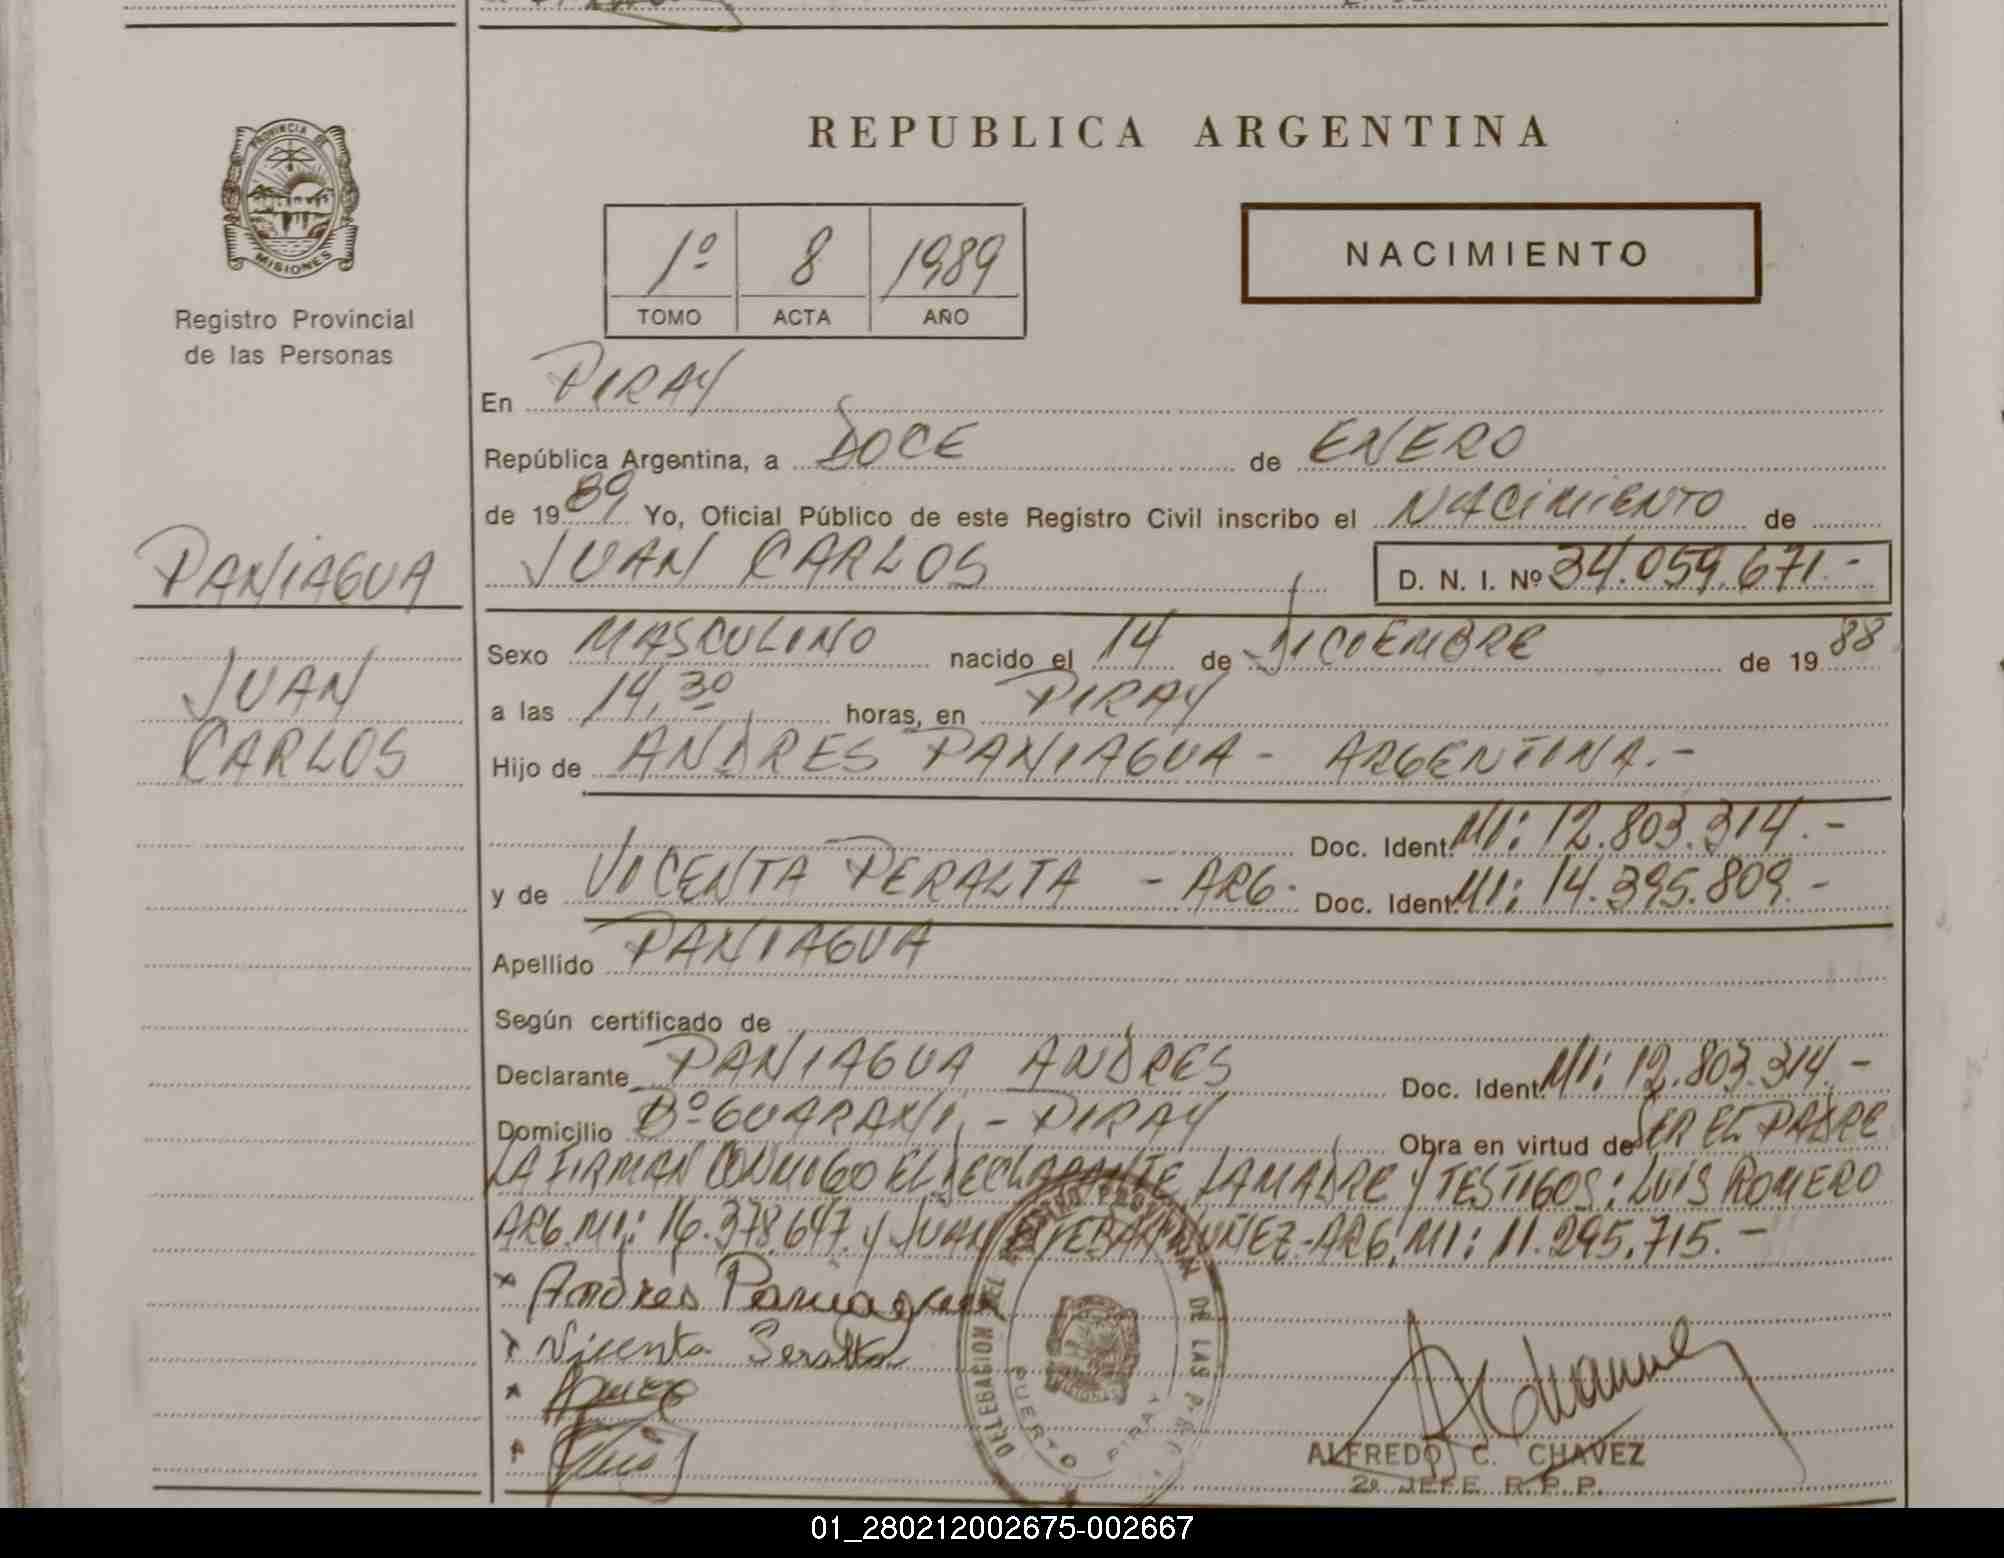 PROVINCIA DE
MISIONES
Registro Provincial
de las Personas
PANIAGUA
JUAN
CARLOS
REPUBLICA ARGENTINA
1º 8 1989
TOMO ACTA AÑO
NACIMIENTO
En PIRAY
República Argentina, a DOCE de ENERO
de 1989 Yo, Oficial Público de este Registro Civil inscribo el NACIMIENTO de
JUAN CARLOS D. N. I. Nº 34.059.671.-
Sexo MASCULINO nacido el 14 de DICIEMBRE de 1988
a las 14,30 horas, en PIRAY
Hijo de ANDRES PANIAGUA - ARGENTINA.-
Doc. Ident. MI: 12.803.314.-
y de VICENTA PERALTA - ARG. Doc. Ident. MI: 14.395.809.-
Apellido PANIAGUA
Según certificado de
Declarante PANIAGUA ANDRES Doc. Ident. MI: 12.803.314.-
Domicilio Bº GUARANI, - PIRAY Obra en virtud de SER EL PADRE
LA FIRMAN CONMIGO EL DECLARANTE LA MADRE Y TESTIGOS: LUIS ROMERO
ARG. MI: 16.378.647. y JUAN NUÑEZ-ARG. MI: 11.295.715.-
x Andres Paniagua
x Vicenta Peralta
x
x
DELEGACION DEL REGISTRO PROVINCIAL DE LAS
PUERTO PIRAY
MISIONES
ALFREDO C. CHAVEZ
2º JEFE R.P.P.
01_280212002675-002667